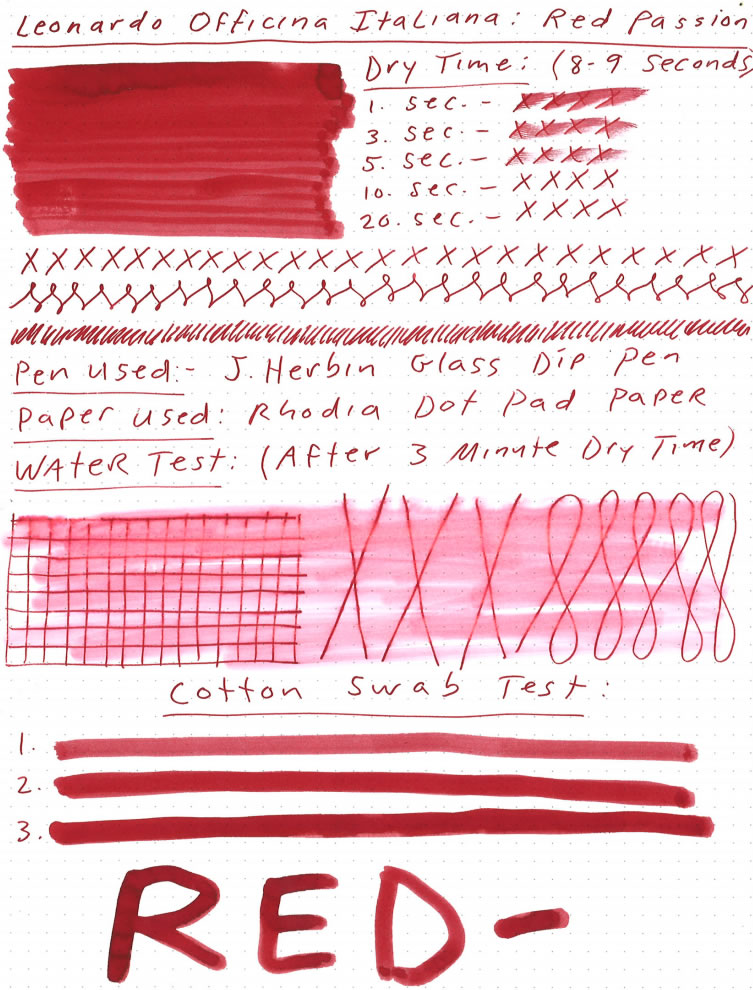 Leonardo Officina Italiana: Red Passion
Dry Time: (8-9 seconds)
1. sec. - x x x x
3. sec. - x x x x
5. sec. - x x x x
10. sec. - x x x x
20. sec. - x x x x
Pen used:- J. Herbin Glass Dip Pen
Paper used: Rhodia Dot Pad Paper
Water Test: (After 3 Minute Dry Time)
Cotton Swab Test:
1.
2.
3.
RED-